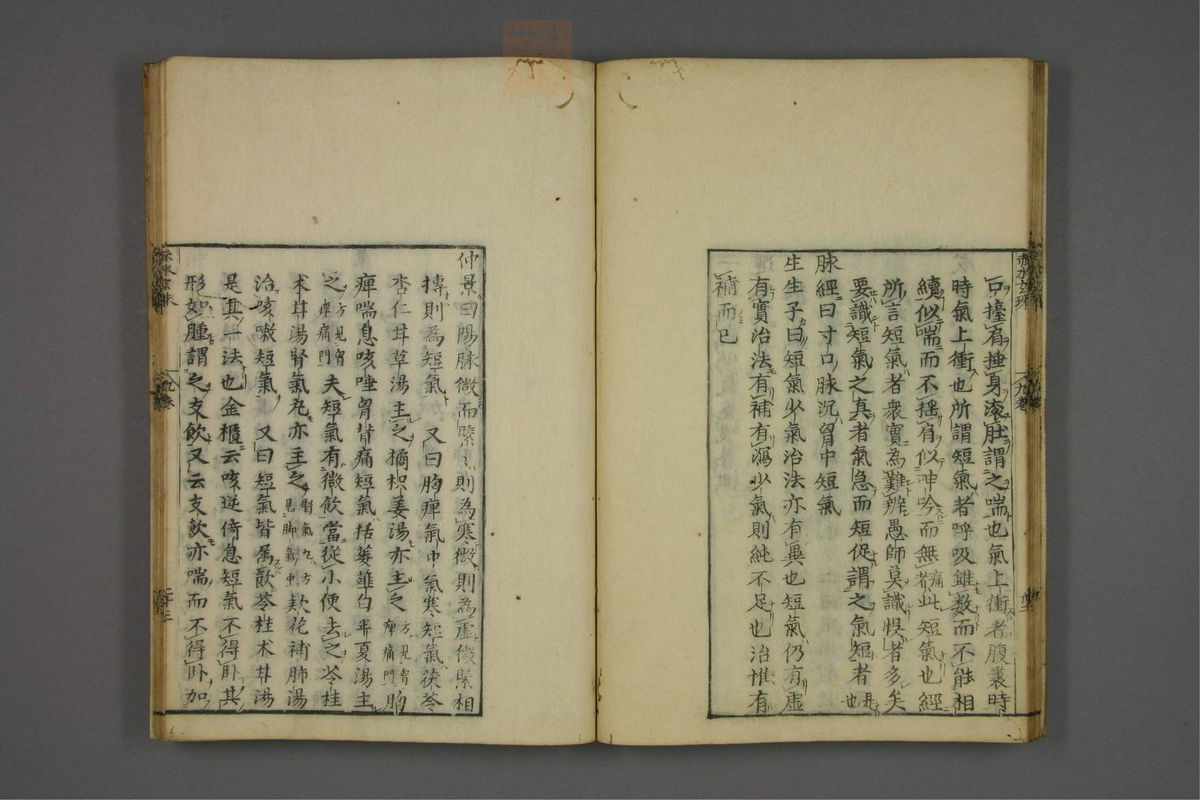 口擡肩捶身滾肚謂之喘也氣上衝者腹裏時
時氣上衝也所謂短氣者呼吸雖數而不能相
續似喘而不搖肩似呻吟而無痛者此短氣也經
所言短氣者衆實為難辨愚師莫識悞者多矣
要識短氣之真者氣急而短促謂之氣短者是也
脉經曰寸口脉沉胷中短氣
生生子曰短氣少氣治法亦有異也短氣仍有虛
有實治法有補有瀉少氣則純不足也治惟有
補而已
仲景曰陽脉微而緊緊則為寒微則為虛微緊相
摶則為短氣 又曰胸痺氣中氣寒短氣茯苓
杏仁甘草湯主之橘枳姜湯亦主之方見胷痺痛門胸
痺喘息咳唾胷背痛短氣栝蔞薤白半夏湯主
之方見胷痺痛門夫短氣有微飲當從小便去之苓桂
术甘湯腎氣丸亦主之腎氣丸方見脚氣中欵花補肺湯
治咳嗽短氣 又曰短氣皆属飲苓桂术甘湯
是其一法也金櫃云咳逆倚息短氣不得卧其
形如腫謂之支飲又云支飲亦喘而不得卧加